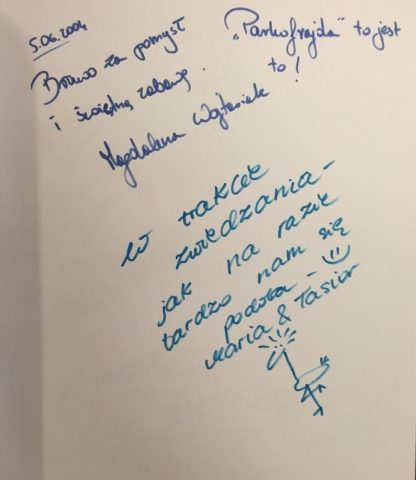 5.06.2004
Brawo za pomysł
i świetną zabawę.
"Parkofrajda" to jest
to!
Magdalena Wojtasiak
W trakcie
zwiedzania -
jak na razie
bardzo nam się
podoba - ☺
Maria & Tasior